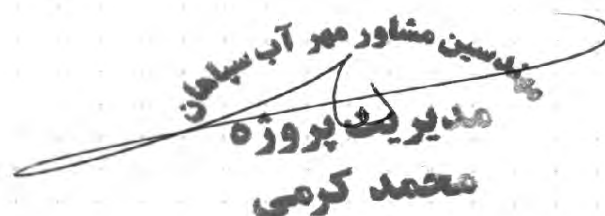 مهندسین مشاور مهر آب سپاهان
مدیریت پروژه
محمد کرمی